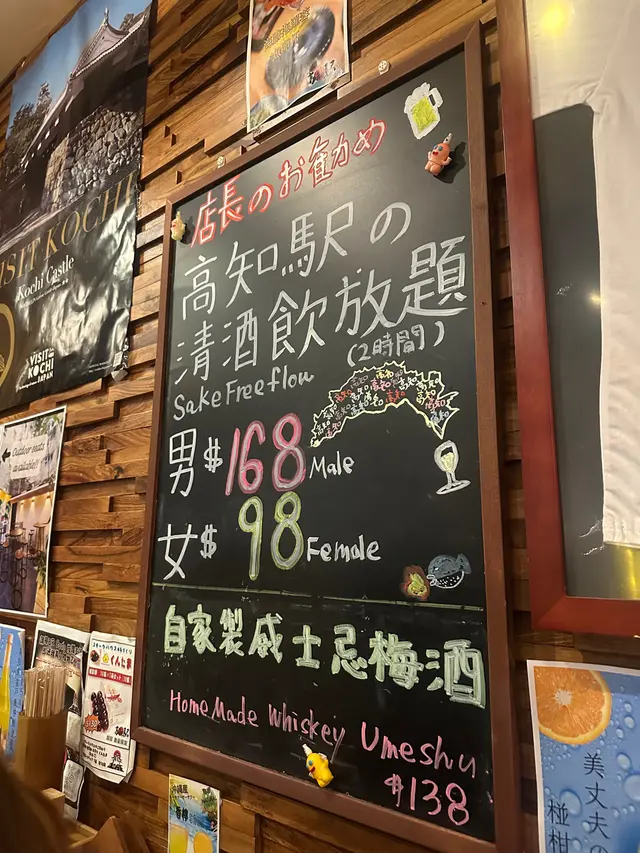 VISIT KOCHI
Kochi Castle
VISIT
KOCHI
JAPAN
店長のお勧め
高知駅の
清酒飲放題
(2時間)
Sake Freeflow
男 $168 Male
女 $98 Female
自家製威士忌梅酒
HomeMade Whiskey Umeshu
$138
美丈夫の
椪柑